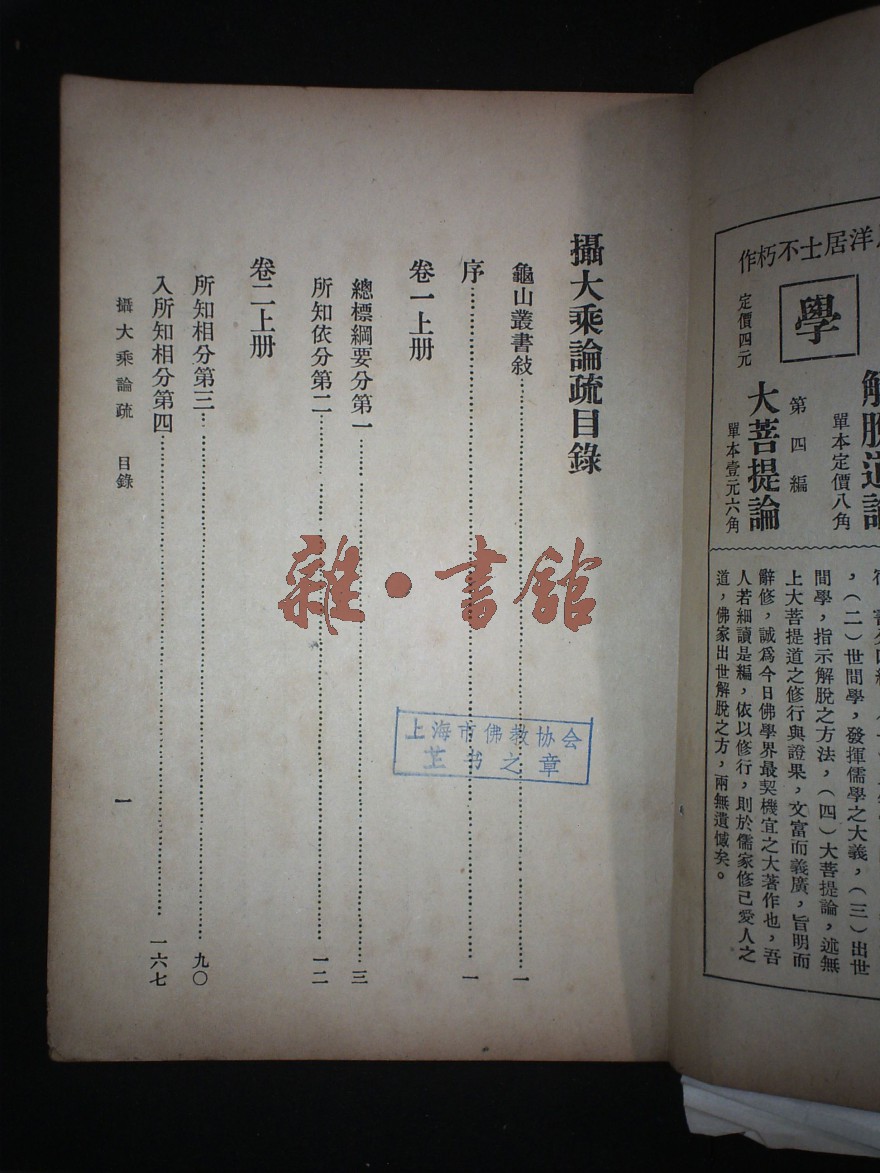 洋居士不朽作
學
定價四元
解脫道論
單本定價八角
第四編
大菩提論
單本壹元六角
，（二）世間學，發揮儒學之大義，（三）出世
間學，指示解脫之方法，（四）大菩提論，述無
上大菩提道之修行與證果，文富而義廣，旨明而
辭修，誠爲今日佛學界最契機宜之大著作也，吾
人若細讀是編，依以修行，則於儒家修己愛人之
道，佛家出世解脫之方，兩無遺憾矣。
攝大乘論疏目錄
龜山叢書敍……一
序……一
卷一上册
總標綱要分第一……三
所知依分第二……一二
卷二上册
所知相分第三……九〇
入所知相分第四……一六七
攝大乘論疏 目錄
一
雜・書館
上海市佛教协会
书之章